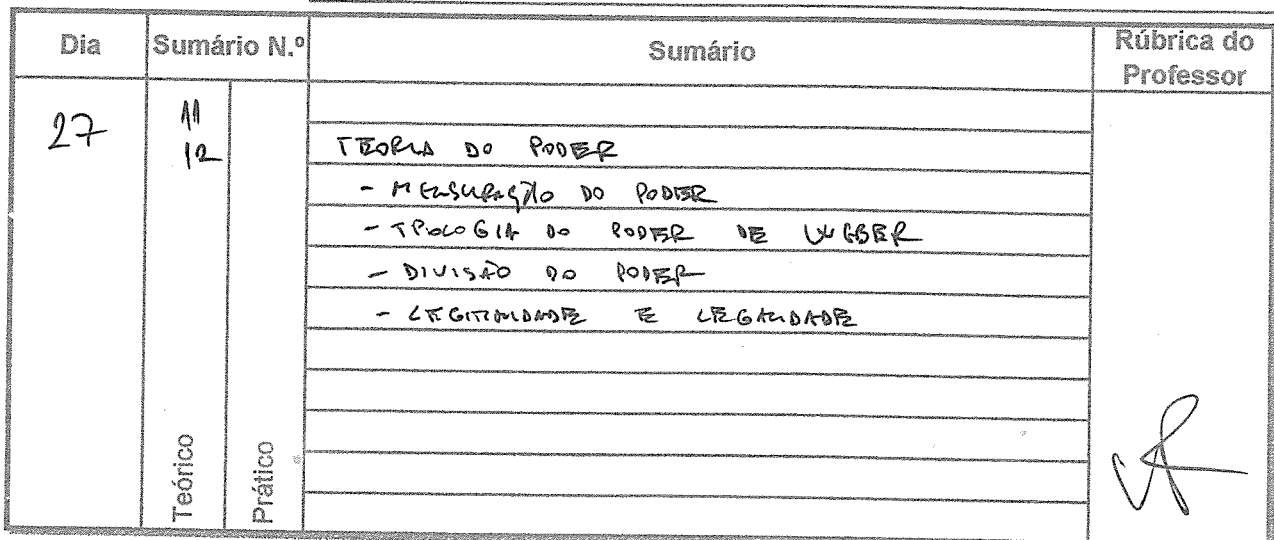 Dia Sumário N.º Sumário Rúbrica do Professor
27 11
12
TEORIA DO PODER
- MENSURAÇÃO DO PODER
- TIPOLOGIA DO PODER DE WEBER
- DIVISÃO DO PODER
- LEGITIMIDADE E LEGALIDADE
Teórico Prático